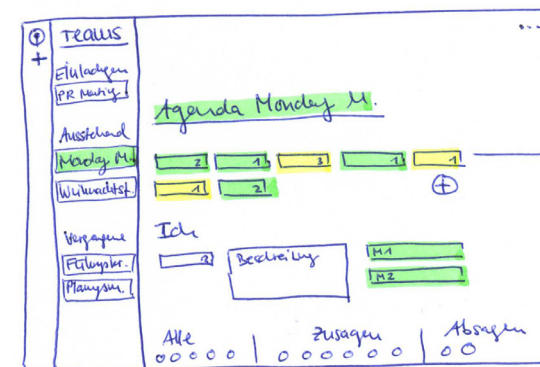 Teams
Einladungen
PR Meeting
Ausstehend
Monday M.
Weihnachtsf.
Vergangene
Planungsm.
Agenda Monday M.
2 1 3 1 1
1 2
Ich
3 Beschreibung M1
M2
Alle Zusagen Absagen